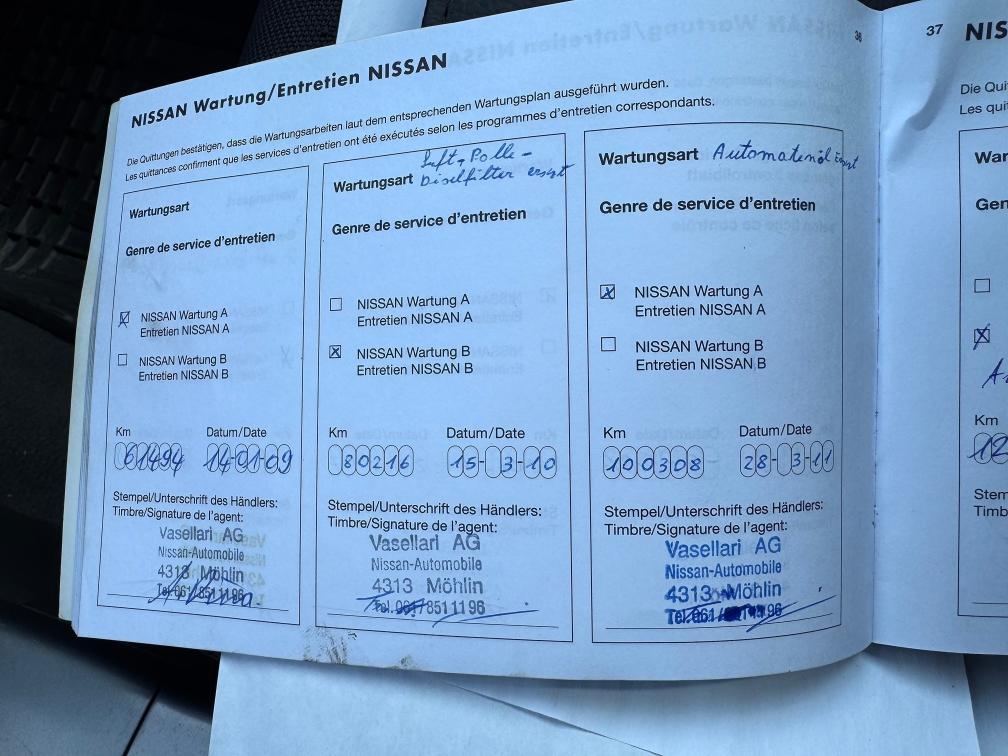 NISSAN Wartung/Entretien NISSAN
36
Die Quittungen bestätigen, dass die Wartungsarbeiten laut dem entsprechenden Wartungsplan ausgeführt wurden.
Les quittances confirment que les services d'entretien ont été exécutés selon les programmes d'entretien correspondants.
Wartungsart
Genre de service d'entretien
NISSAN Wartung A
Entretien NISSAN A
NISSAN Wartung B
Entretien NISSAN B
Km Datum/Date
61494 14-01-09
Stempel/Unterschrift des Händlers:
Timbre/Signature de l'agent:
Vasellari AG
Nissan-Automobile
4313 Möhlin
Tel. 061/851 11 96
Luft, Polle-
Wartungsart Diselfilter ersetzt
Genre de service d'entretien
NISSAN Wartung A
Entretien NISSAN A
NISSAN Wartung B
Entretien NISSAN B
Km Datum/Date
80216 15-3-10
Stempel/Unterschrift des Händlers:
Timbre/Signature de l'agent:
Vasellari AG
Nissan-Automobile
4313 Möhlin
Tel. 061/851 11 96
Wartungsart Automatenöl ersetzt
Genre de service d'entretien
NISSAN Wartung A
Entretien NISSAN A
NISSAN Wartung B
Entretien NISSAN B
Km Datum/Date
100308 28-3-11
Stempel/Unterschrift des Händlers:
Timbre/Signature de l'agent:
Vasellari AG
Nissan-Automobile
4313 Möhlin
Tel. 061/851 11 96
37 NIS
Die Quit
Les quit
War
Gen
Km
12
Stem
Timb